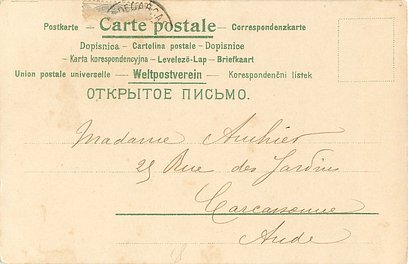 Postkarte - Carte postale - Correspondenzkarte
Dopisnica - Cartolina postale - Dopisnice
Karta korespondencyjna - Levelező-Lap - Briefkaart
Union postale universelle / Weltpostverein / Korespondenční lístek
ОТКРЫТОЕ ПИСЬМО.
Madame
25 Rue des Jardins
Carcassonne
Aude